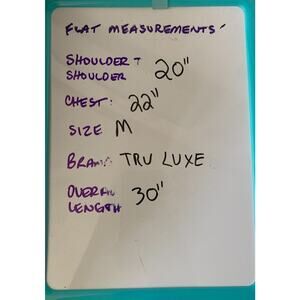 FLAT MEASUREMENTS
SHOULDER T
SHOULDER 20"
CHEST: 22"
SIZE M
BRAND TRU LUXE
OVERALL
LENGTH 30"